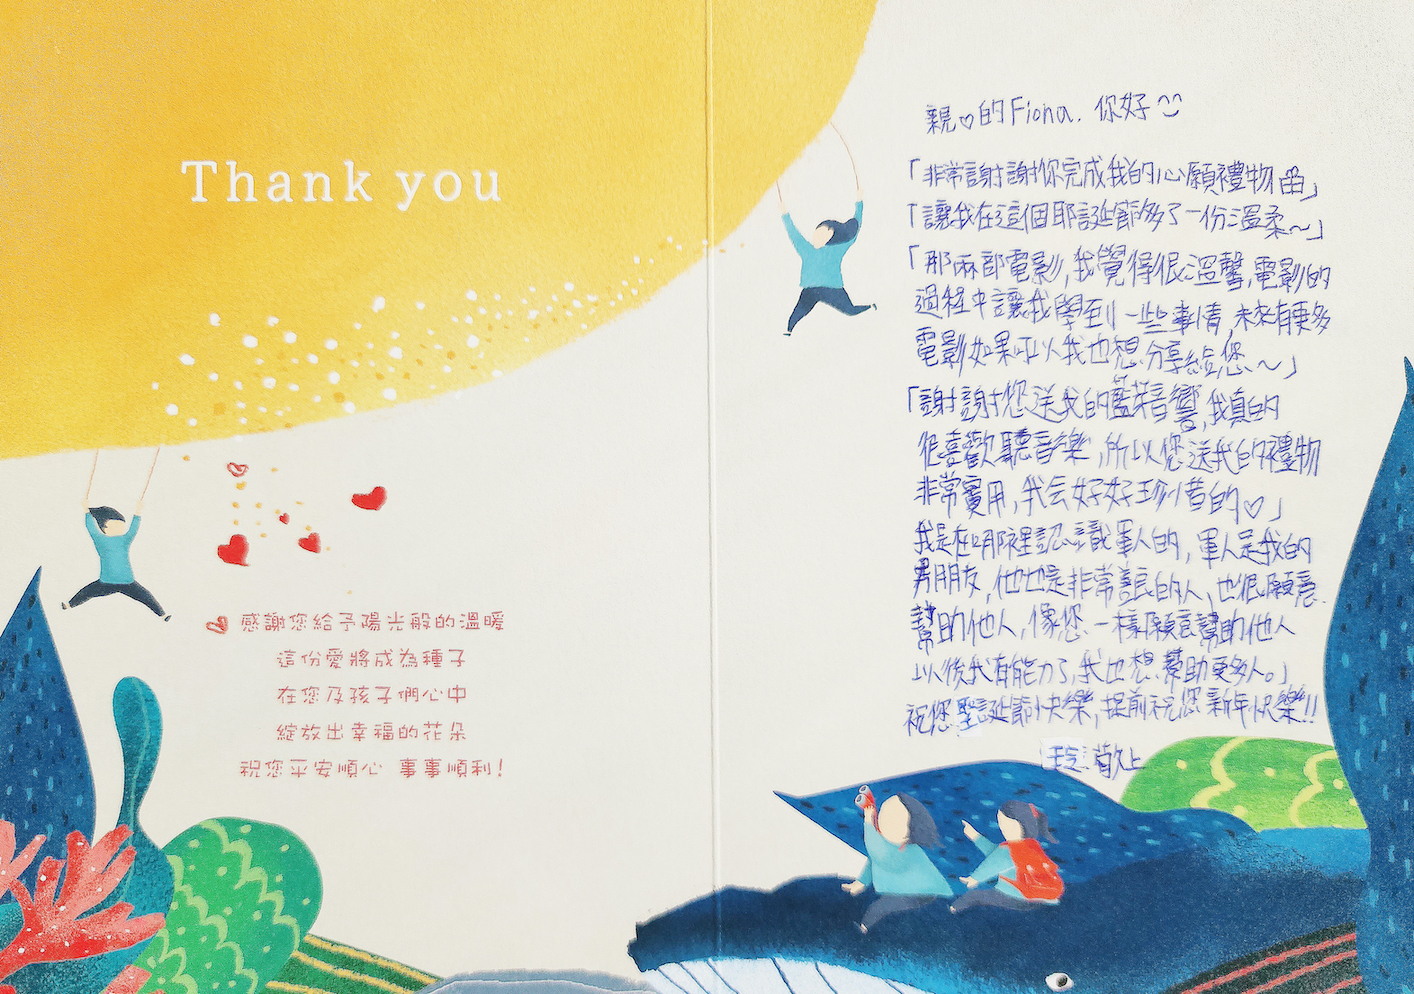 Thank you
感謝您給予陽光般的溫暖
這份愛將成為種子
在您及孩子們心中
綻放出幸福的花朵
祝您平安順心 事事順利!
親♡的Fiona. 你好
「非常謝謝你完成我的心願禮物」
「讓我在這個耶誕節多了一份溫柔~」
「那兩部電影,我覺得很溫馨,電影的
過程中讓我學到一些事情,未來有更多
電影如果可以我也想分享給您~」
「謝謝您送我的藍芽音響,我真的
很喜歡聽音樂,所以您送我的禮物
非常實用,我会好好珍惜的♡」
我是在哪裡認識軍人的,軍人是我的
男朋友,他也是非常善良的人,也很願意
幫助他人,像您一樣願意幫助他人
以後我有能力了,我也想幫助更多人。」
祝您聖誕節快樂,提前祝您新年快樂!!
敬上